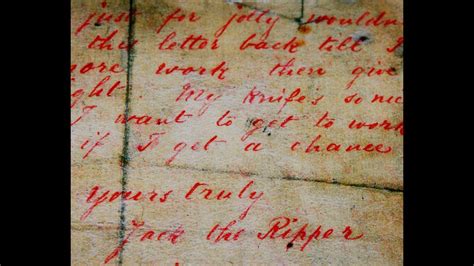 just for jolly wouldn
this letter back till I
more work then give
ght My knife's so nice
I want to get to work
if I get a chance
yours truly
Jack the Ripper